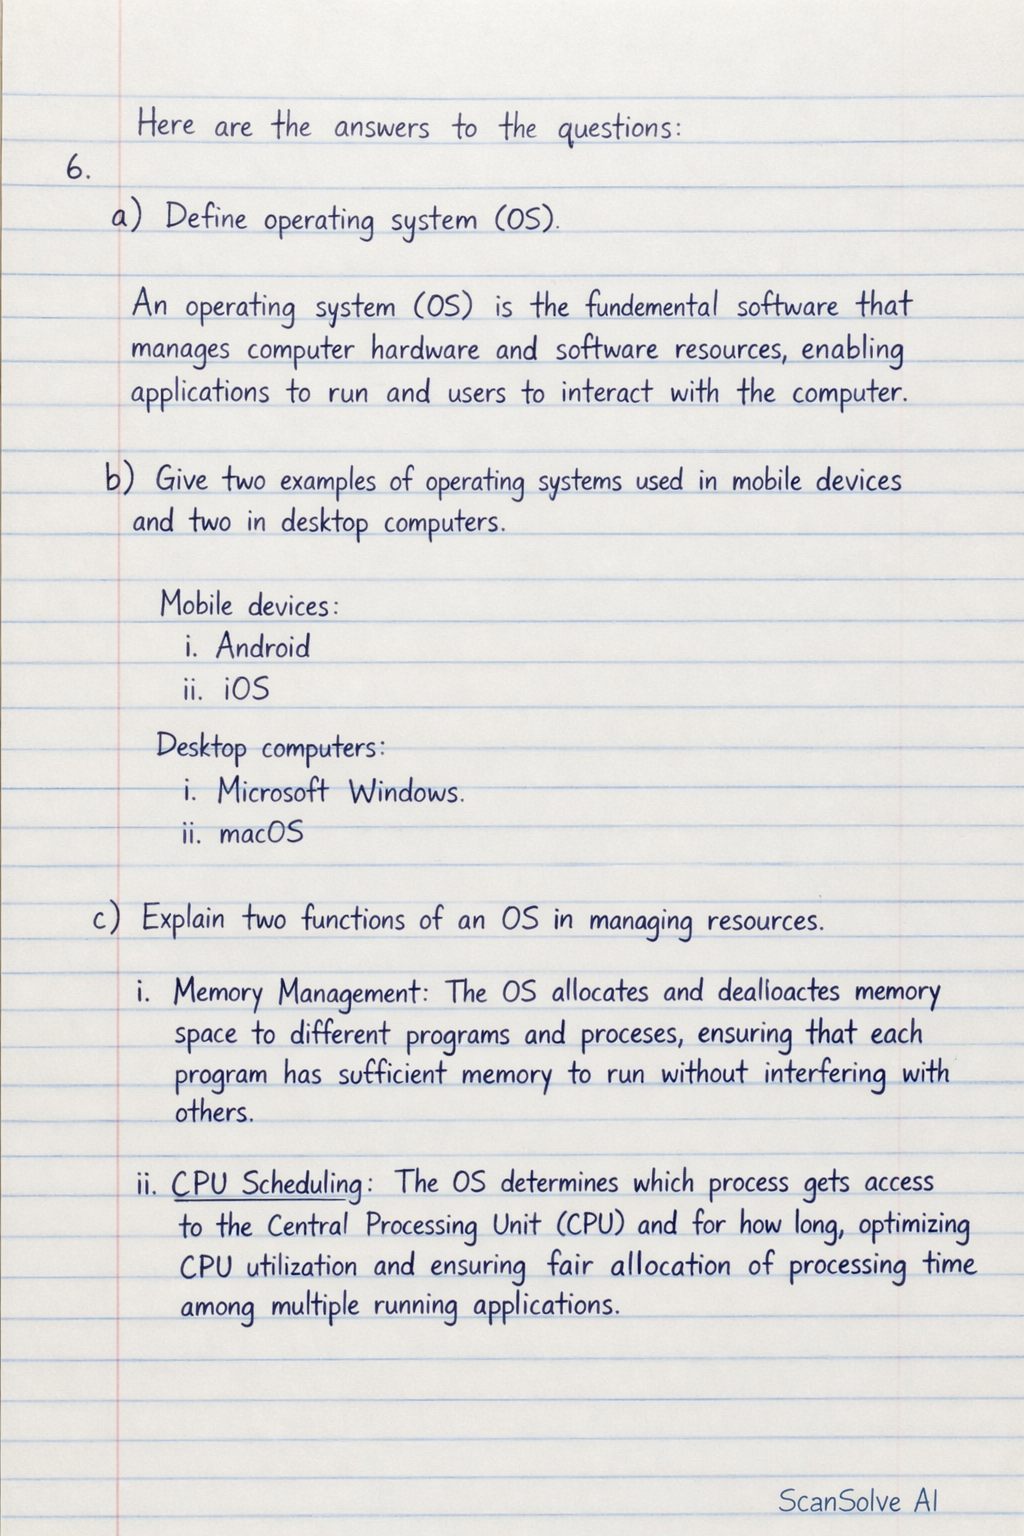 Here are the answers to the questions:
6.
a) Define operating system (OS).
An operating system (OS) is the fundemental software that
manages computer hardware and software resources, enabling
applications to run and users to interact with the computer.
b) Give two examples of operating systems used in mobile devices
and two in desktop computers.
Mobile devices:
i. Android
ii. iOS
Desktop computers:
i. Microsoft Windows.
ii. macOS
c) Explain two functions of an OS in managing resources.
i. Memory Management: The OS allocates and dealloactes memory
space to different programs and proceses, ensuring that each
program has sufficient memory to run without interfering with
others.
ii. CPU Scheduling: The OS determines which process gets access
to the Central Processing Unit (CPU) and for how long, optimizing
CPU utilization and ensuring fair allocation of processing time
among multiple running applications.
ScanSolve AI